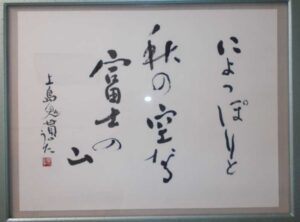 によっぽりと
秋の空なる
富士の
山
上島鬼貫